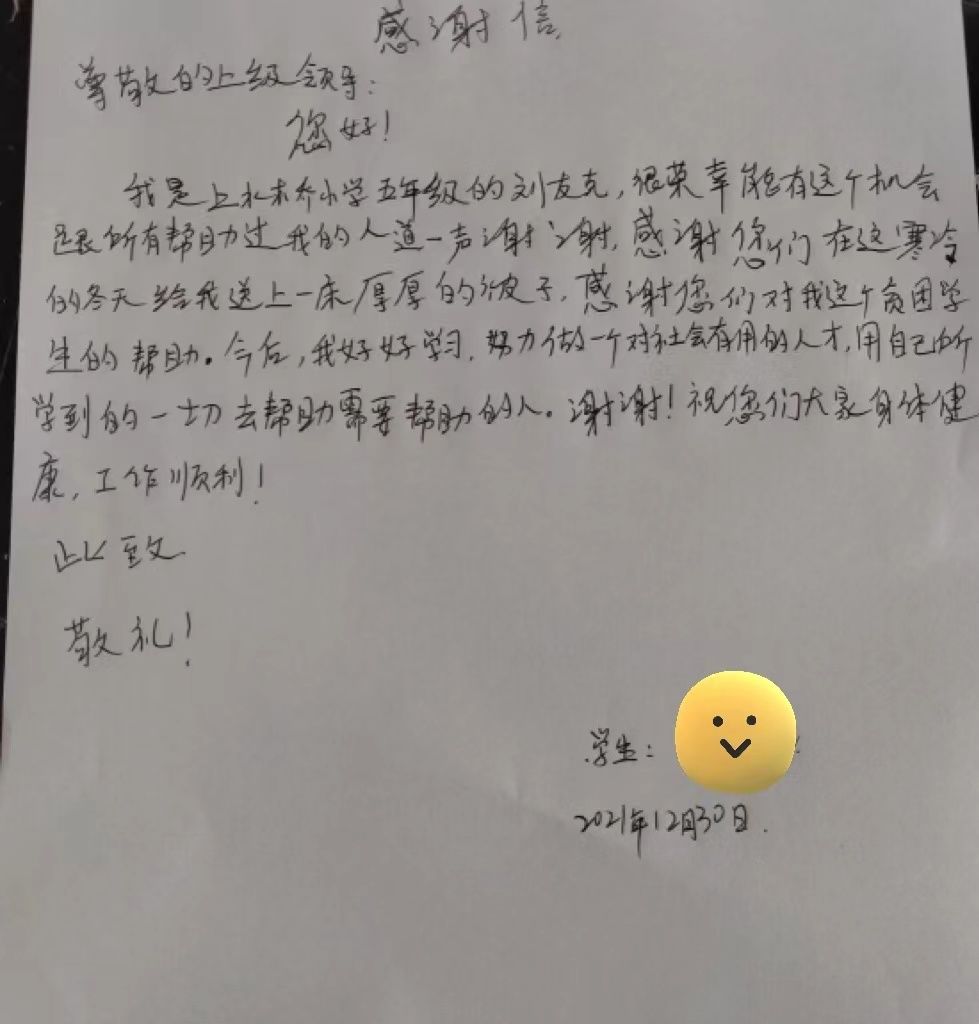 感谢信
尊敬的上级领导：
您好！
我是上水木乔小学五年级的刘友克，很荣幸能有这个机会
跟所有帮助过我的人道一声谢谢，感谢您们在这寒冷
的冬天给我送上一床厚厚的被子，感谢您们对我这个贫困学
生的帮助。今后，我好好学习，努力做一个对社会有用的人才，用自己所
学到的一切去帮助需要帮助的人。谢谢！祝您们大家身体健
康，工作顺利！
此致
敬礼！
学生：
2021年12月30日.